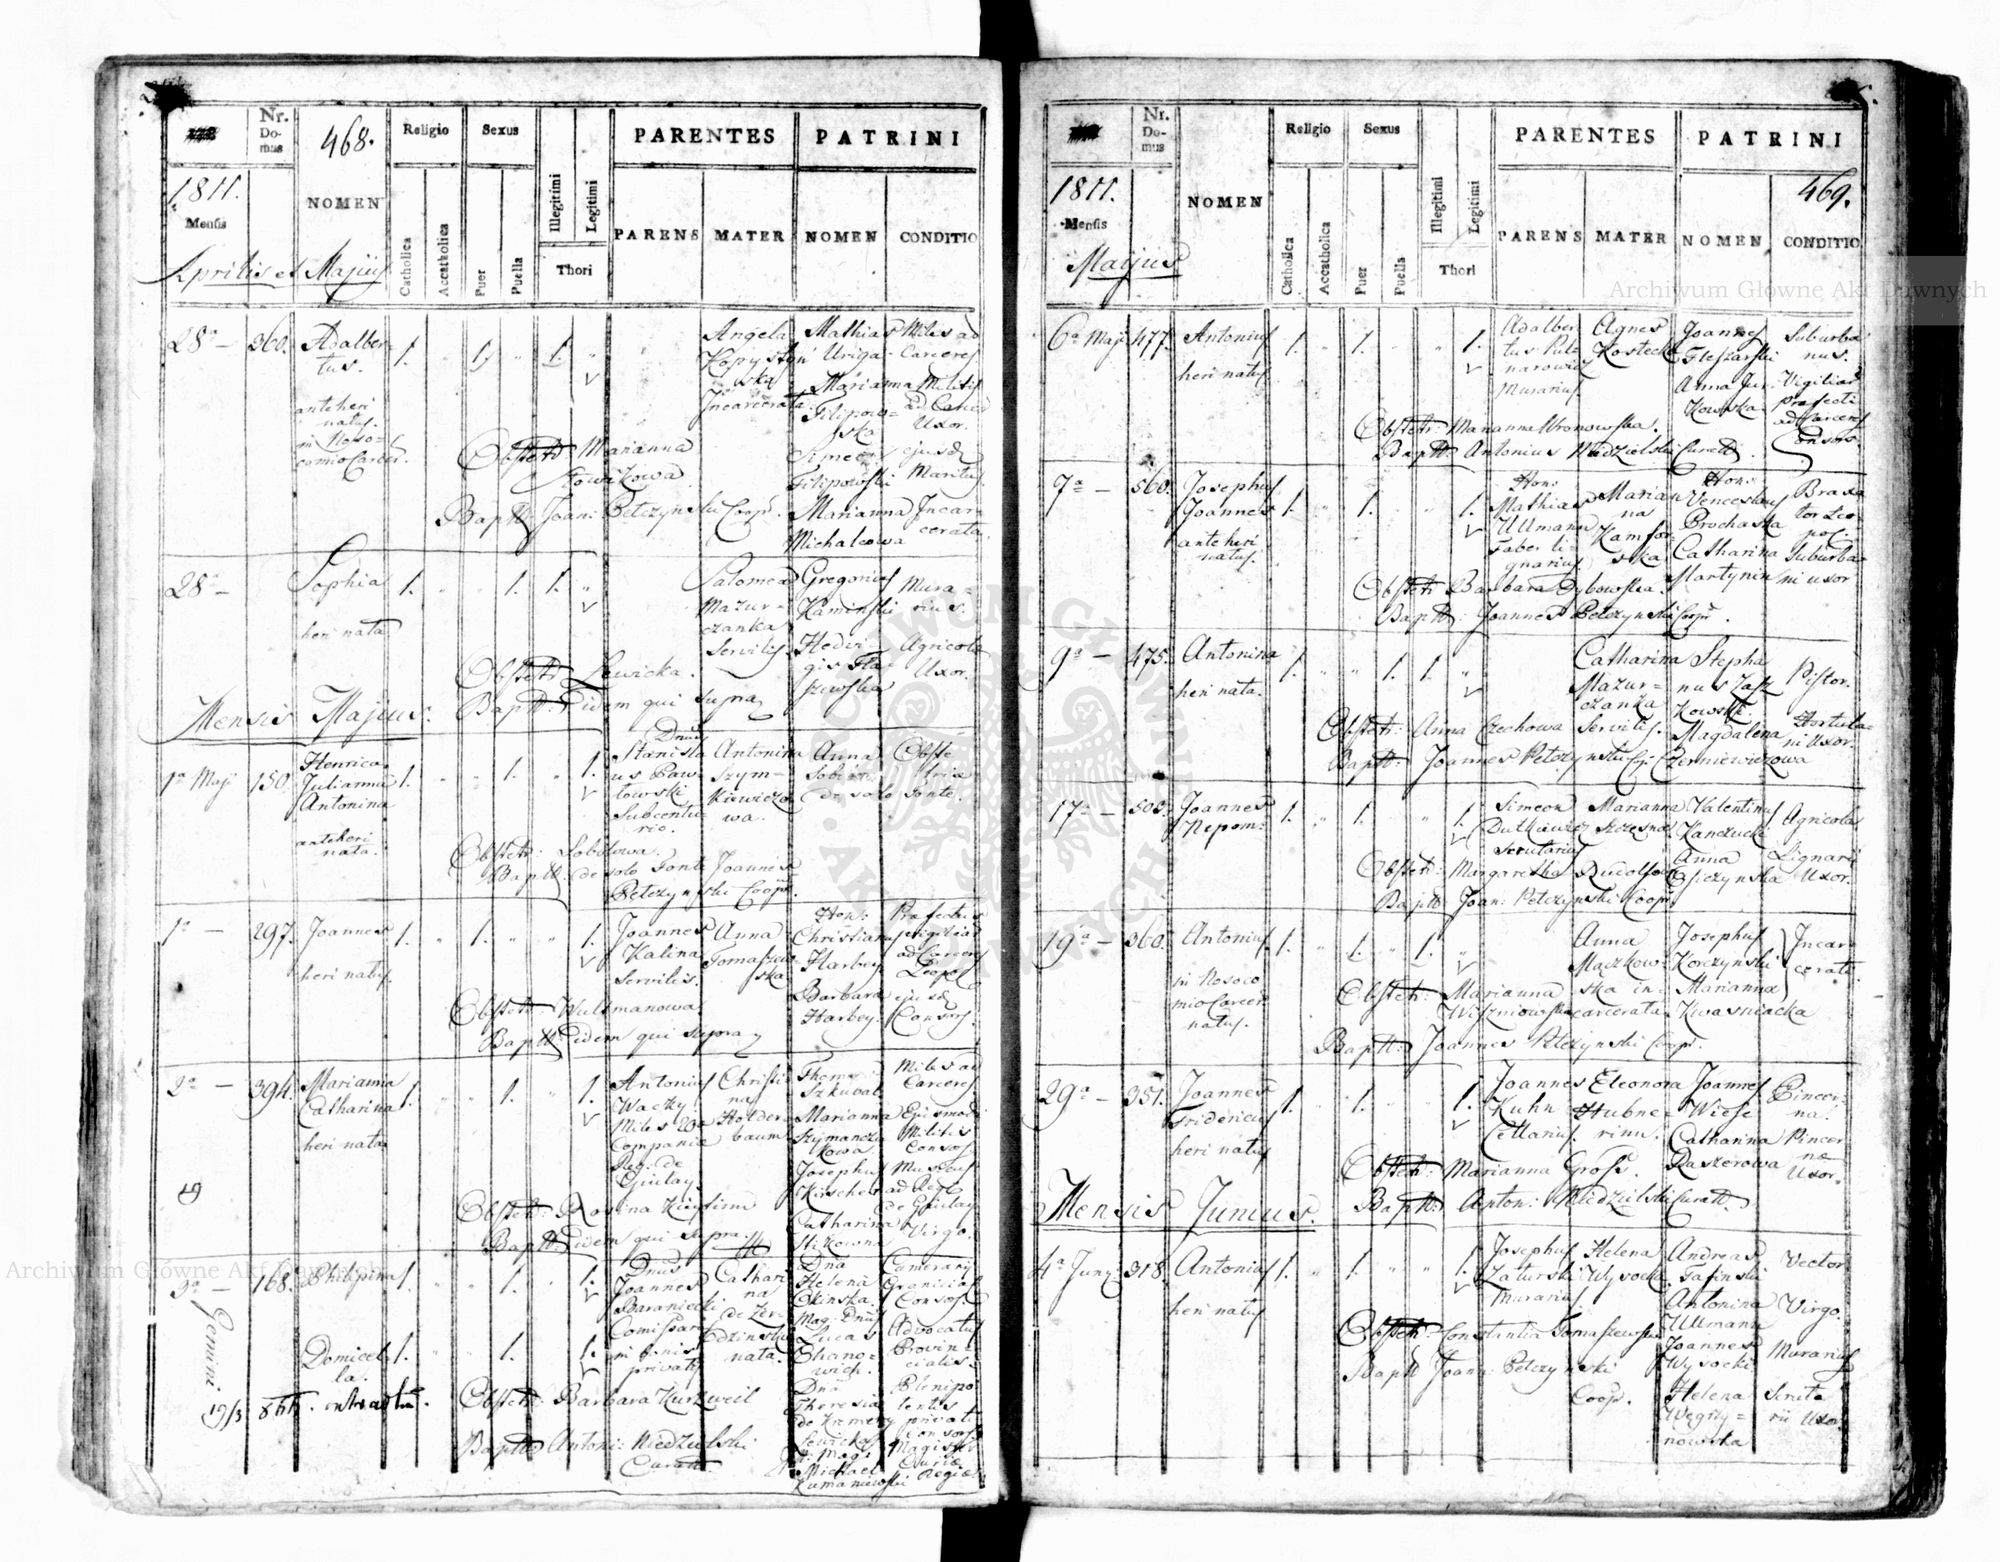 Nr. Domus
468.
Religio
Sexus
PARENTES
PATRINI
1811.
Mensis
NOMEN
Catholica
Accatholica
Puer
Puella
Illegitimi
Legitimi
Thori
PARENS
MATER
NOMEN
CONDITIO
Aprilis et Majus
28a — 360. Adalber-
tus.
ante heri
natus.
in Noso-
comio Carcer.
1. 1. 1.
Angela
Kopystyn
ska
Incarcerata
Mathias
Uriga
Marianna
Filipow-
ska
Simeon
Filipowski
Marianna
Michalcowa
Miles ad
Carceres
Militis
ad Carcer
Uxor.
ejusd
Maritus.
Incar-
cerata.
Obstetr: Marianna
Słowikowa.
Bapt: Joan: Pełczynski Coop.
28a — Sophia
heri nata
1. 1. 1.
Salomea
Mazur-
czanka
Servilis
Gregorius
Kaminski
Hedvi-
gis Sta-
szewska
Mura-
rius.
Agricolæ
Uxor.
Obstetr: Lewicka.
Bapt: idem qui supra
Mensis Majus.
1a Maji 150. Henrica
Julianna
Antonina
ante heri
nata.
1. 1. 1.
Dnus
Stanisla
us Paw-
łowski
Subcentu-
rio.
Antonina
Szym-
kiewiczo
wa.
Anna
de solo fonte.
Obstetr: Sobolowa.
Bapt: de solo fonte Joannes
Pełczynski Coop.
1a — 297. Joannes
heri natus.
1. 1. 1.
Joannes
Kalina
Servilis.
Anna
Tomaszew-
ska
Hon:
Christianus
Harbey
Barbara
Harbey.
Præfectus
vigiliar
ad Carcer
Leopol
ejusd
Consors.
Obstetr: Wultmanowa.
Bapt: idem qui supra
2a — 394. Marianna
Catharina
heri nata
1. 1. 1.
Antonius
Waczky
Miles
Companiæ
Reg. de
Giulay.
Christi-
na
Holder-
baum
Thoma
Szkuvat
Marianna
Szymancza
kowa.
Josephus
Kirscher
Catharina
Miles ad
Carceres
Ejusmodi
Militis
Consors
Musicus
ad Reg.
de Giulay
Virgo.
Obstetr: Rosina
Bapt: idem qui supra.
3a — 168. Philippina
Domicel-
la.
Gemini
1. 1. 1.
1. 1. 1.
Dnus
Joannes
Baraniecki
Comissar
in finis
privati
Cathari-
na
de Zer-
dzinskie
nata.
Dna
Helena
Okinska
Mag: Dnus
Lucas
Ohano-
wich.
Dna
Theresia
de Kremery
Lewicka
Michael
Kumaniewski
Camerarij
Graniciar
Consors.
Advocatus
Provin-
cialis.
Plenipo-
tentis
privati
Consors
Magister
Curiæ
Regiæ
Obstetr: Barbara Kurzweil
Bapt: Antoni: Niedzielski
Curat.
Nr. Domus
Religio
Sexus
PARENTES
PATRINI
1811.
Mensis
469.
NOMEN
Catholica
Accatholica
Puer
Puella
Illegitimi
Legitimi
Thori
PARENS
MATER
NOMEN
CONDITIO
Majus
6a Maji 477. Antonius
heri natus
1. 1. 1.
Adalber-
tus Pulz-
narowicz
Murarius
Agnes
Kostecka
Joannes
Fleszarski
Anna Jur-
kowska
Suburba-
nus.
Vigiliar
præfecti
ad carceres
Consors.
Obstetr: Marianna Wronowska.
Bapt: Antonius Niedzielski Curat.
7a — 560. Josephus
Joannes
ante heri
natus.
1. 1. 1.
Hon:
Mathias
Ullmann
Faber li-
gnarius
Marian-
na
Kamfor-
ska
Hon:
Venceslaus
Prochaska
Catharina
Martynin
Braxa-
tor Leo-
pol:
Suburba-
ni uxor
Obstetr: Barbara Dybowska.
Bapt: Joannes Pełczynski Coop.
9a — 475. Antonina
heri nata.
1. 1. 1.
Catharina
Mazur-
czanka
Servilis.
Stepha-
nus Zasz
kowski
Magdalena
Czerniewiczowa
Pistor.
Hortula-
ni Uxor.
Obstetr: Anna Czechowa
Bapt: Joannes Pełczynski
17a — 503. Joannes
Nepom:
1. 1. 1.
Simeon
Dutkiewicz
Scrutarius
Marianna
Valentinus
Kanczucki
Anna
Agricola
Lignarii
Uxor.
Obstetr: Margaretha Rudolfowa
Bapt: Joan: Pełczynski Coop.
19a — 360. Antonius
in Nosoco-
mio Carcer:
natus.
1. 1. 1.
Anna
Maczkow-
ska in-
carcerata.
Josephus
Korczynski
Marianna
Kwasniacka
Incar-
cerati.
Obstetr: Marianna
Wiszniowska
Bapt: Joannes Pełczynski Coop.
29a — 351. Joannes
Fridericus
heri natus
1. 1. 1.
Joannes
Kuhn
Cellarius.
Eleonora
Hubne-
rinn.
Joannes
Wiese
Catharina
Raszerowa
Pincer-
na.
Pincer-
næ
Uxor.
Obstetr: Marianna Gross.
Bapt: Anton: Niedzielski Curat.
Mensis Junius.
4a Juny 318. Antonius
heri natus
1. 1. 1.
Josephus
Zaturski
Murarius.
Helena
Wysocka.
Andreas
Tasinski
Antonina
Ullmann
Joannes
Wysocki
Helena
Węgrzy-
nowska
Vector
Virgo.
Murarius
Scruta-
rii Uxor
Obstetr: Constantia Tomaszewska
Bapt: Joann: Pełczynski
Coop.
Archiwum Główne Akt Dawnych
Archiwum Główne Akt Dawnych
ARCHIWUM GŁÓWNE AKT DAWNYCH